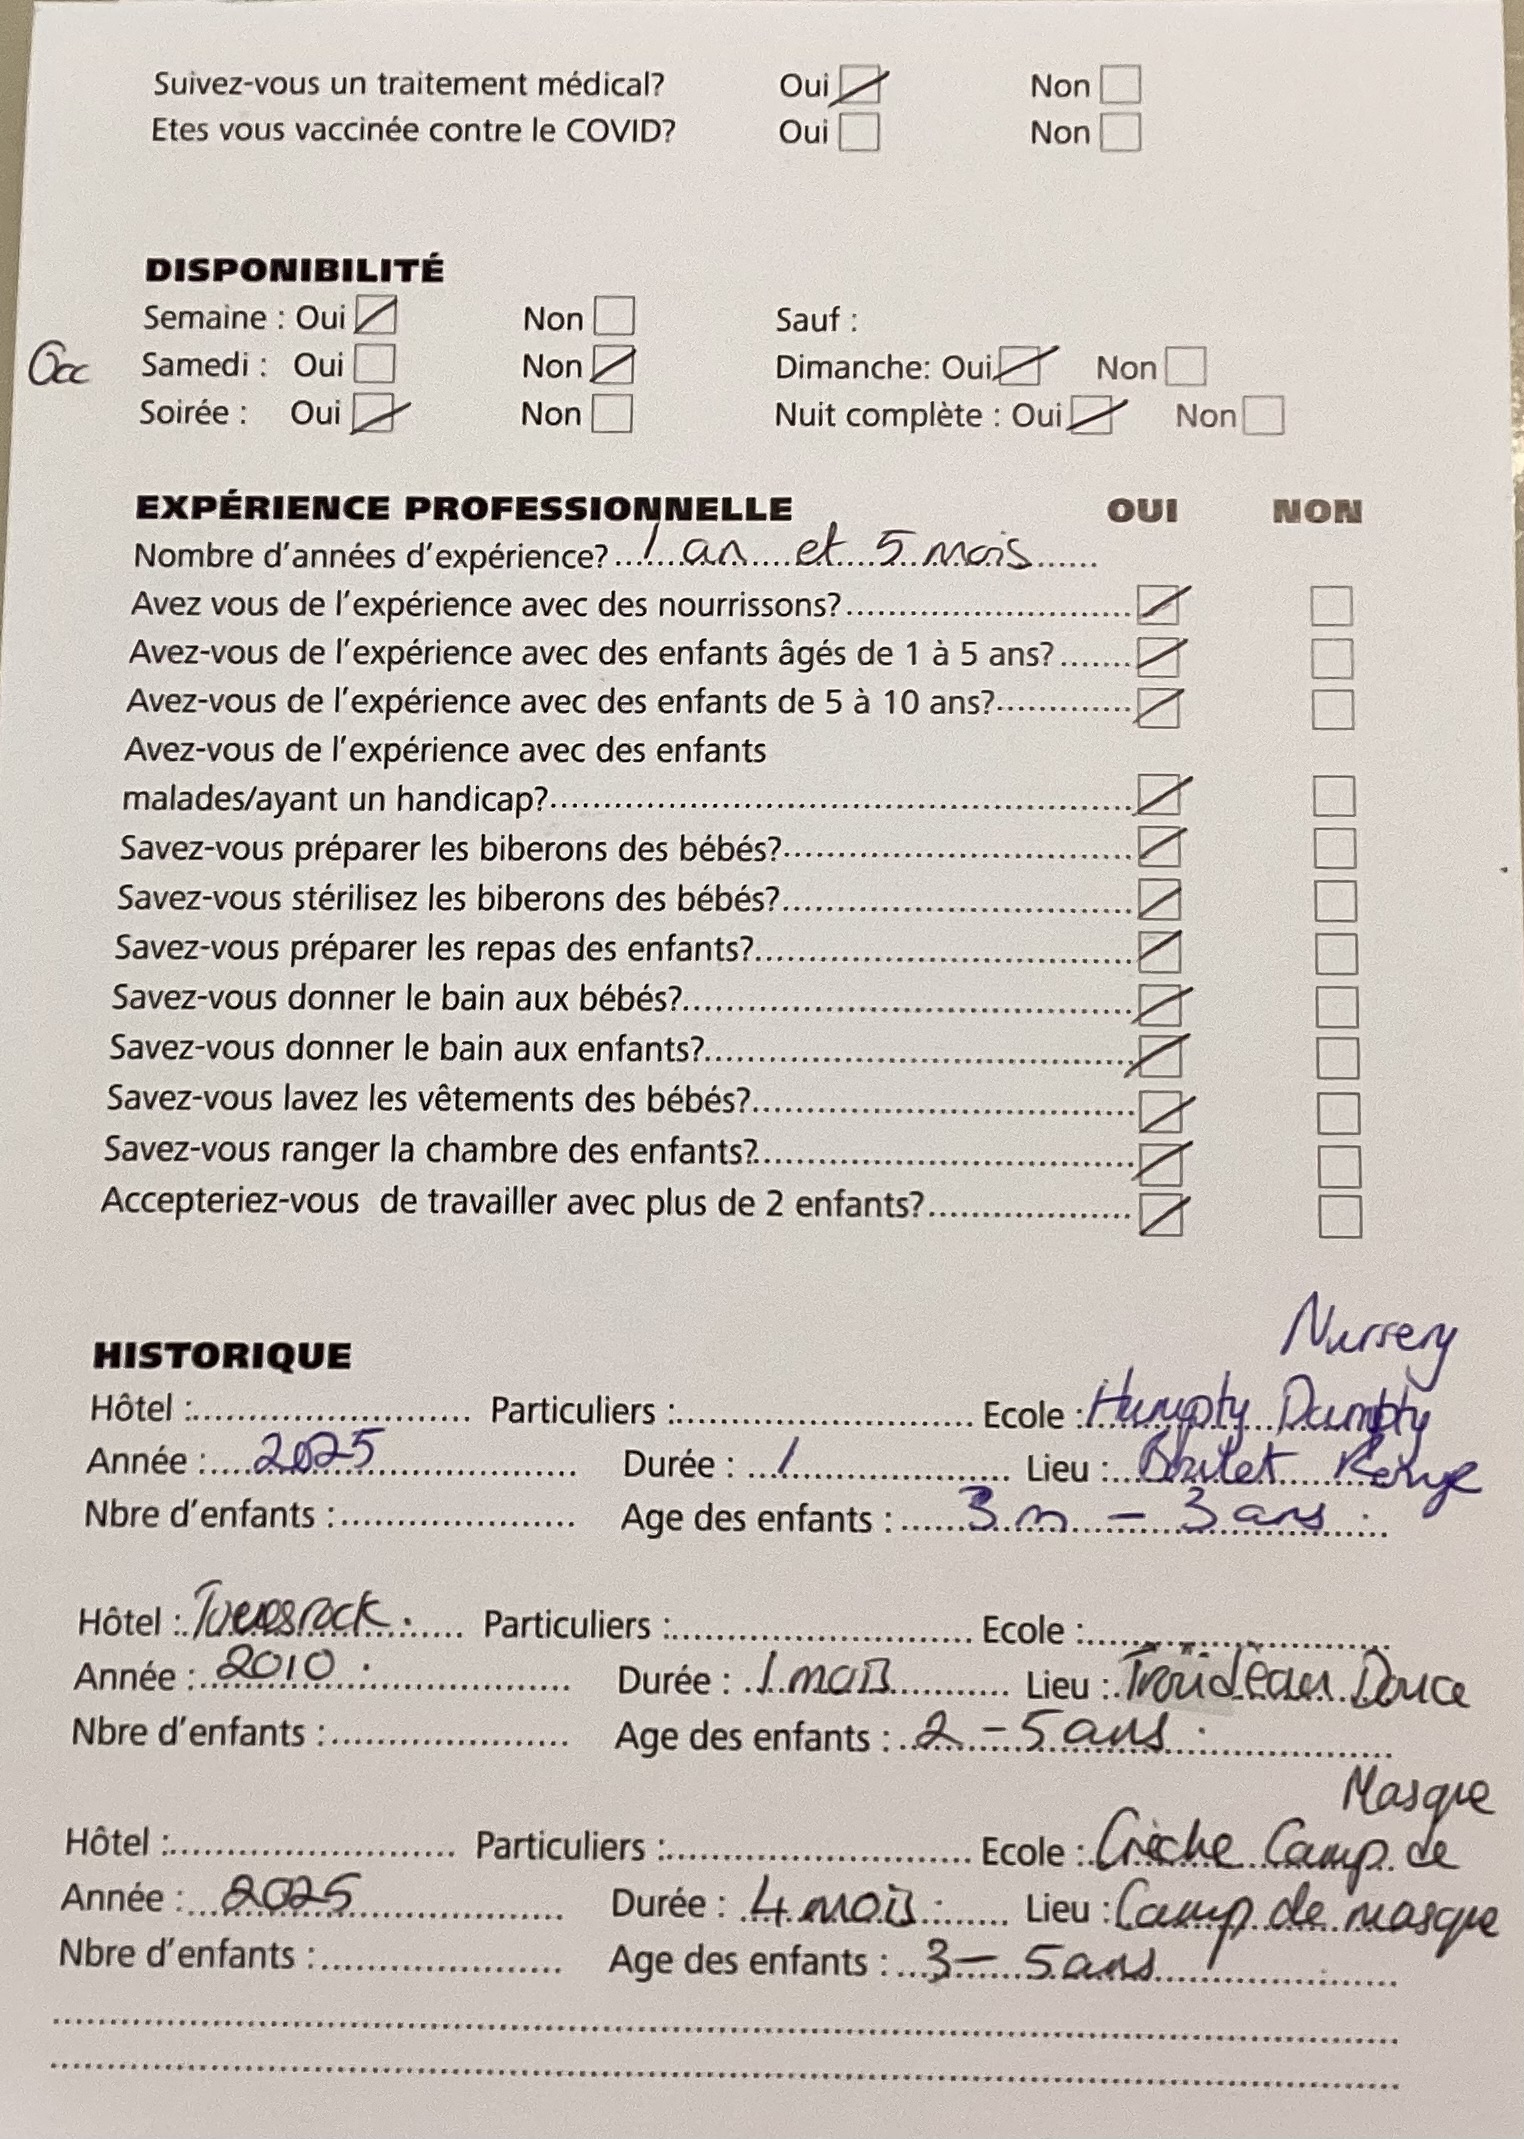 Suivez-vous un traitement médical? Oui ☑ Non ☐
Etes vous vaccinée contre le COVID? Oui ☐ Non ☐
DISPONIBILITÉ
Semaine : Oui ☑ Non ☐ Sauf :
Occ Samedi : Oui ☐ Non ☑ Dimanche: Oui ☑ Non ☐
Soirée : Oui ☑ Non ☐ Nuit complète : Oui ☑ Non ☐
EXPÉRIENCE PROFESSIONNELLE OUI NON
Nombre d'années d'expérience? 1 an et 5 mois
Avez vous de l'expérience avec des nourrissons? ☑ ☐
Avez-vous de l'expérience avec des enfants âgés de 1 à 5 ans? ☑ ☐
Avez-vous de l'expérience avec des enfants de 5 à 10 ans? ☑ ☐
Avez-vous de l'expérience avec des enfants
malades/ayant un handicap? ☑ ☐
Savez-vous préparer les biberons des bébés? ☑ ☐
Savez-vous stérilisez les biberons des bébés? ☑ ☐
Savez-vous préparer les repas des enfants? ☑ ☐
Savez-vous donner le bain aux bébés? ☑ ☐
Savez-vous donner le bain aux enfants? ☑ ☐
Savez-vous lavez les vêtements des bébés? ☑ ☐
Savez-vous ranger la chambre des enfants? ☑ ☐
Accepteriez-vous de travailler avec plus de 2 enfants? ☑ ☐
Nursery
HISTORIQUE
Hôtel : Particuliers : Ecole : Humpty Dumpty
Année : 2025 Durée : 1 Lieu :
Nbre d'enfants : Age des enfants : 3 m – 3 ans
Hôtel : Particuliers : Ecole :
Année : 2010 Durée : 1 mois Lieu : Douce
Nbre d'enfants : Age des enfants : 2 – 5 ans
Masque
Hôtel : Particuliers : Ecole : Crèche Camp de
Année : 2025 Durée : 4 mois Lieu : Camp de masque
Nbre d'enfants : Age des enfants : 3 – 5 ans